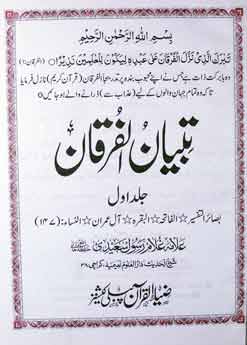 بِسْمِ اللهِ الرَّحْمٰنِ الرَّحِيْمِ
تَبٰرَكَ الَّذِيْ نَزَّلَ الْفُرْقَانَ عَلٰى عَبْدِهٖ لِيَكُوْنَ لِلْعٰلَمِيْنَ نَذِيْرًا (الفرقان:۱)
وہ بابرکت ذات ہے جس نے اپنے محبوب بندہ پر بتدریج الفرقان (قرآن کریم) نازل فرمایا
تاکہ وہ تمام جہان والوں کے لیے (عذاب سے) ڈرانے والے ہو جائیں
تبیان الفرقان
جلد اول
بصائر التفسیر ☆ الفاتحہ ☆ البقرہ ☆ آل عمران ☆ النساء: (۱۴۷)
علامہ غلام رسول سعیدی
شیخ الحدیث دارالعلوم نعیمیہ، کراچی ۳۸
ضیاء القرآن پبلی کیشنز